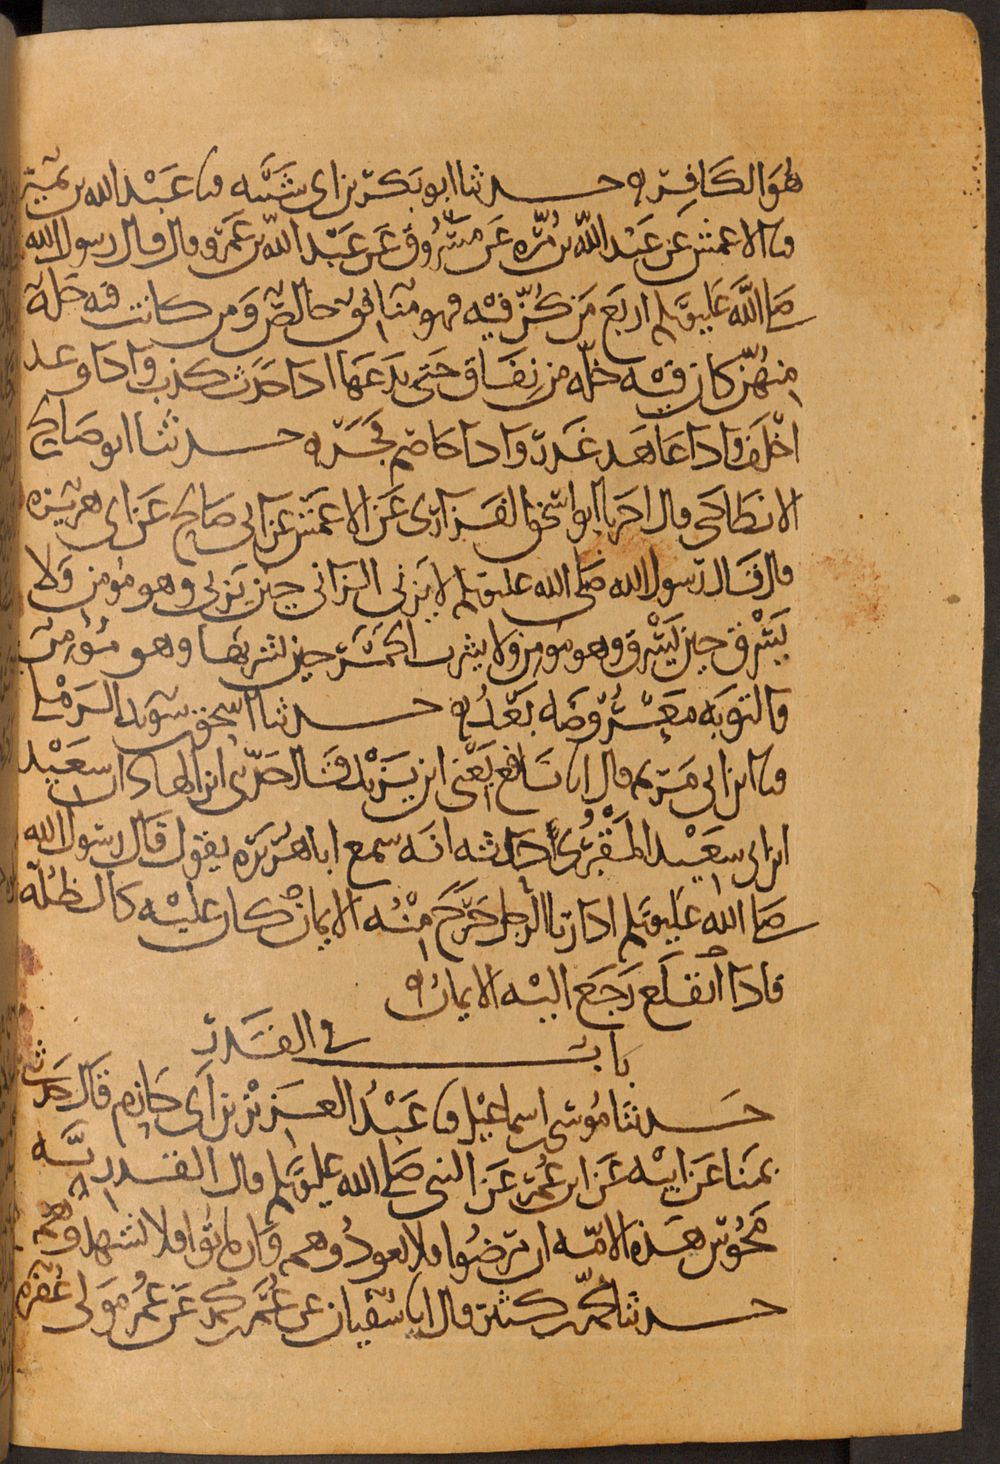 هو الكافر ه حدثنا ابو بكر بن ابى شيبه نا عبد الله بن نمير
نا الاعمش عن عبد الله بن مره عن مسروق عن عبد الله بن عمرو قال قال رسول الله
صلى الله عليه وسلم اربع من كن فيه فهو منافق خالص ومن كانت فيه خلة
منهن كان فيه خلة من نفاق حتى يدعها اذا حدث كذب واذا وعد
اخلف واذا عاهد غدر واذا خاصم فجر ه حدثنا ابو صالح
الانطاكى قال اخبرنا ابو اسحق الفزارى عن الاعمش عن ابى صالح عن ابى هريره
قال قال رسول الله صلى الله عليه وسلم لا يزنى الزانى حين يزنى وهو مؤمن ولا
يسرق حين يسرق وهو مؤمن ولا يشرب الخمر حين يشربها وهو مؤمن
والتوبه معروضه بعد ه حدثنا اسحق بن سويد الرملى
نا ابن ابى مريم قال انا نافع يعنى ابن يزيد قال حدثنى ابن الهاد ان سعيد
ابن ابى سعيد المقبرى حدثه انه سمع ابا هريره يقول قال رسول الله
صلى الله عليه وسلم اذا زنا الرجل خرج منه الايمان كان عليه كالظلة
فاذا انقلع رجع اليه الايمان ه
باب فى القدر
حدثنا موسى بن اسماعيل نا عبد العزيز بن ابى حازم قال حدثنى
بمنا عن ابيه عن ابن عمر عن النبى صلى الله عليه وسلم قال القدريه
مجوس هذه الامه ان مرضوا فلا تعودوهم وان ماتوا فلا تشهدوهم
حدثنا محمد بن كثير قال انا سفيان عن عمر بن محمد عن عمر مولى غفره